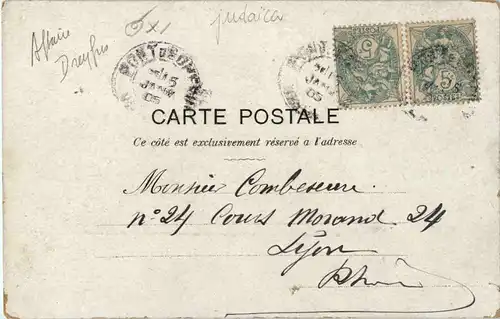 Affaire
Dreyfus
judaïca
PONT DE
15
JANV
05
5
5
CARTE POSTALE
Ce côté est exclusivement réservé a l'adresse
Monsieur
n° 24 Cours Morand 24
Lyon
Rhône